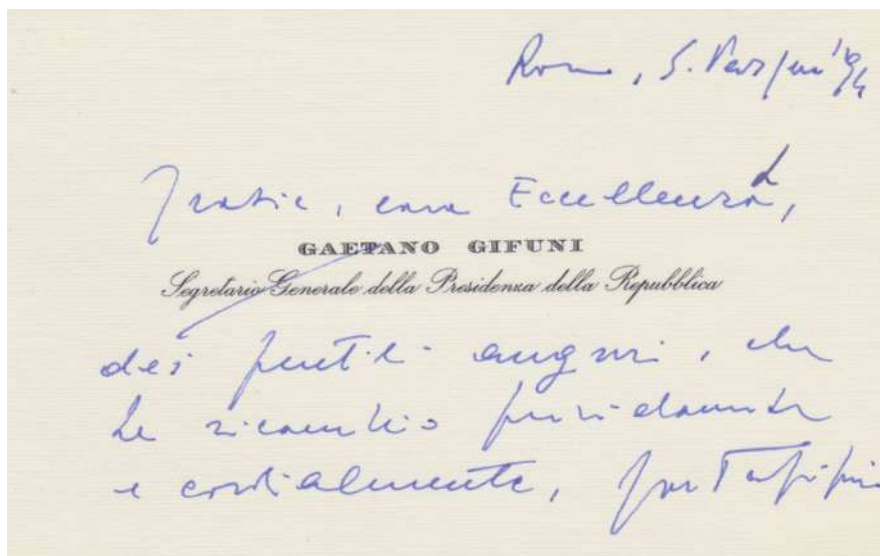 Roma, S. Pasqua '94
Grazie, cara Eccellenza,
GAETANO GIFUNI
Segretario Generale della Presidenza della Repubblica
dei gentili auguri, che
Le ricambio
e cordialmente,